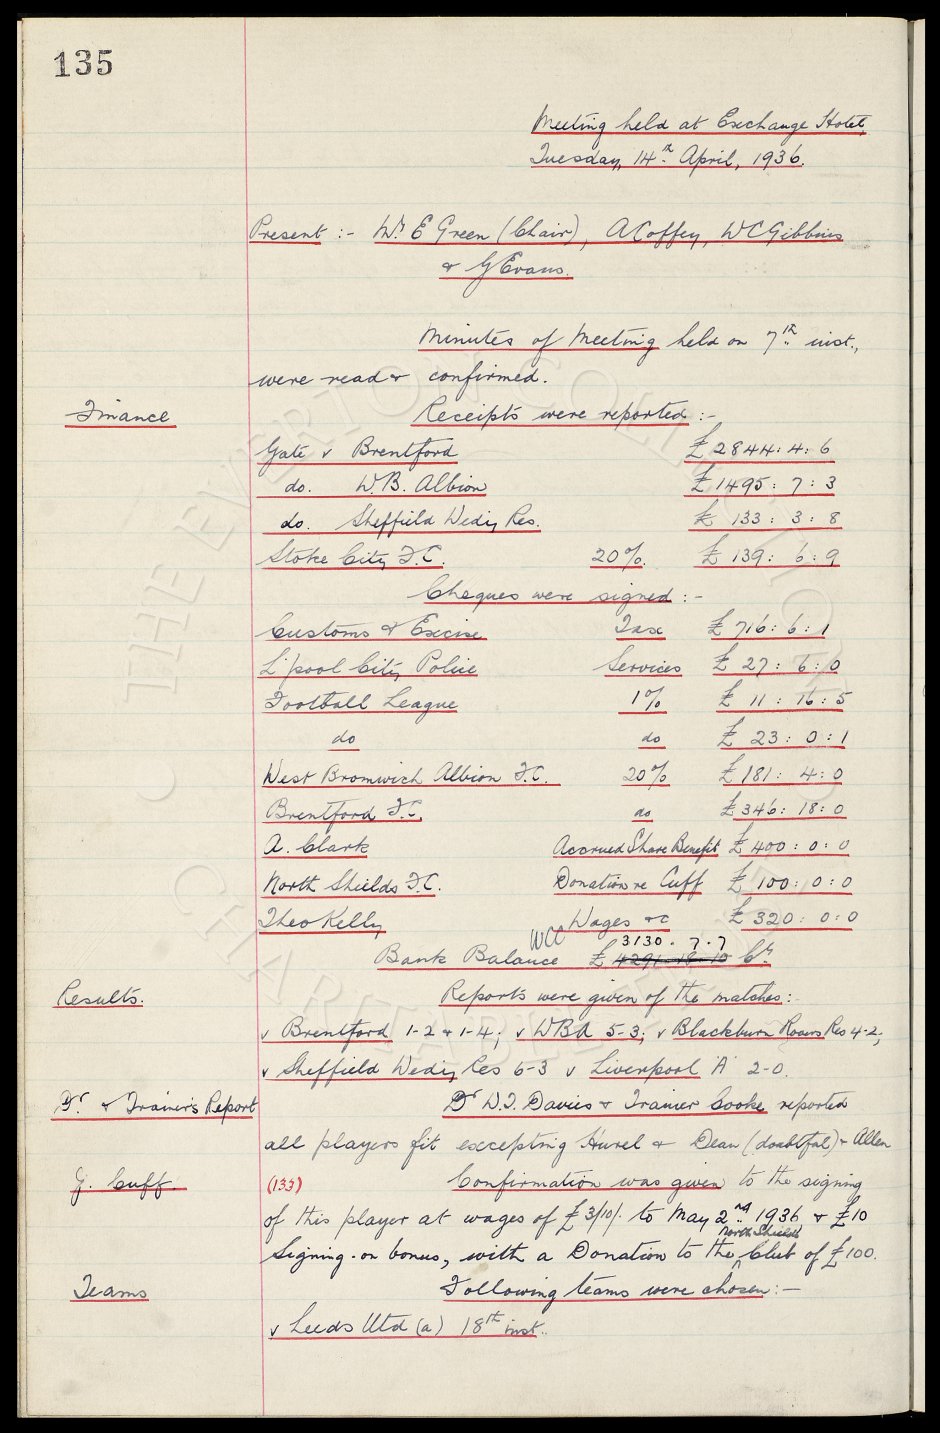 135
Meeting held at Exchange Hotel,
Tuesday, 14th April, 1936.
Present :- Mr E Green (Chair), A Coffey, W C Gibbins
& G Evans.
Minutes of Meeting held on 7th inst.,
were read & confirmed.
Finance Receipts were reported :-
Gate v Brentford £2844 : 4 : 6
do. W.B. Albion £1495 : 7 : 3
do. Sheffield Wedy Res. £ 133 : 3 : 8
Stoke City F.C. 20% £ 139 : 6 : 9
Cheques were signed :-
Customs & Excise Tax £ 716 : 6 : 1
L'pool City Police Services £ 27 : 6 : 0
Football League 1% £ 11 : 16 : 5
do do £ 23 : 0 : 1
West Bromwich Albion F.C. 20% £ 181 : 4 : 0
Brentford F.C. do £ 346 : 18 : 0
A. Clark Accrued Share Benefit £ 400 : 0 : 0
North Shields F.C. Donation re Cuff £ 100 : 0 : 0
Theo Kelly Wages &c £ 320 : 0 : 0
WCC 3130 . 7 . 7
Bank Balance £ 4291 . 18 . 10 Cr.
Results. Reports were given of the matches :-
v Brentford 1-2 & 1-4; v WBA 5-3; v Blackburn Rovers Res 4-2,
v Sheffield Wedy Res 6-3 v Liverpool 'A' 2-0.
Dr. & Trainer's Report Dr W.J. Davies & Trainer Cooke reported
all players fit excepting Hurel & Dean (doubtful) & Allen
G. Cuff. (133) Confirmation was given to the signing
of this player at wages of £3/10/- to May 2nd 1936 & £10
North Shields
Signing-on bonus, with a Donation to the Club of £100.
Teams Following teams were chosen :-
v Leeds Utd (a) 18th inst.
© THE EVERTON COLLECTION CHARITABLE TRUST